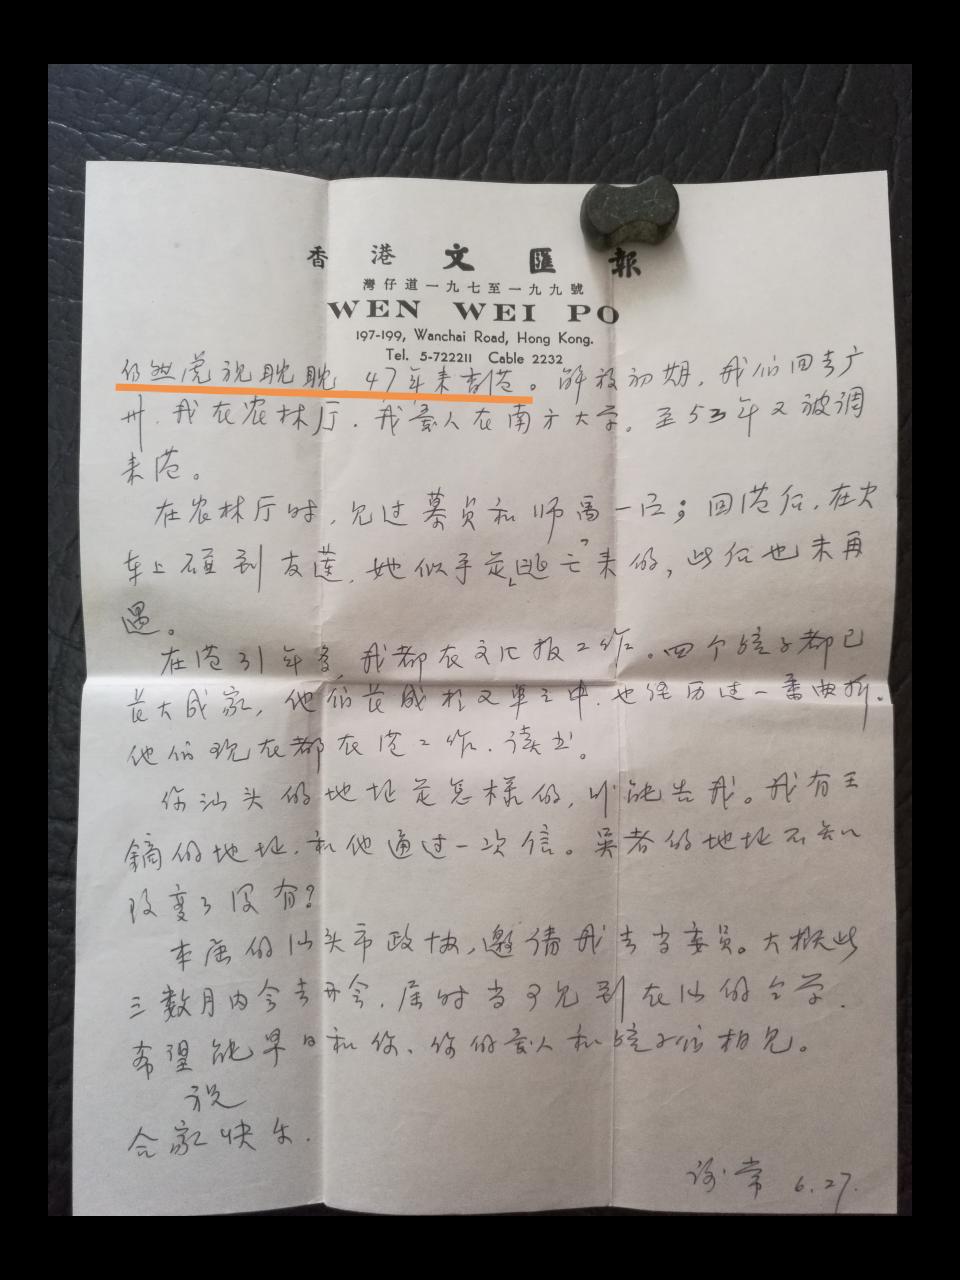 香港文匯報
灣仔道一九七至一九九號
WEN WEI PO
197-199, Wanchai Road, Hong Kong.
Tel. 5-722211 Cable 2232
仍然虎视眈眈 47年来香港。解放初期，我们回去广
州，我在农林厅，我爱人在南方大学。至53年又被调
来港。
在农林厅时，见过慕员和师禹一应；回港后，在火
车上碰到友莲，她似乎是逃亡来的，此后也未再
遇。
在港31年多，我都在文汇报工作。四个孩子都已
长大成家，他们长成于艰辛之中，也经历过一番曲折。
他们现在都在港工作、读书。
你汕头的地址是怎样的，可能告我。我有王
镝的地址，和他通过一次信。吴者的地址不知
改变了没有？
本届的汕头市政协，邀请我去当委员。大概此
三数月内会去开会，届时当可见到在汕的同学，
希望能早日和你、你的爱人和孩子们相见。
祝
合家快乐．
常 6.27.